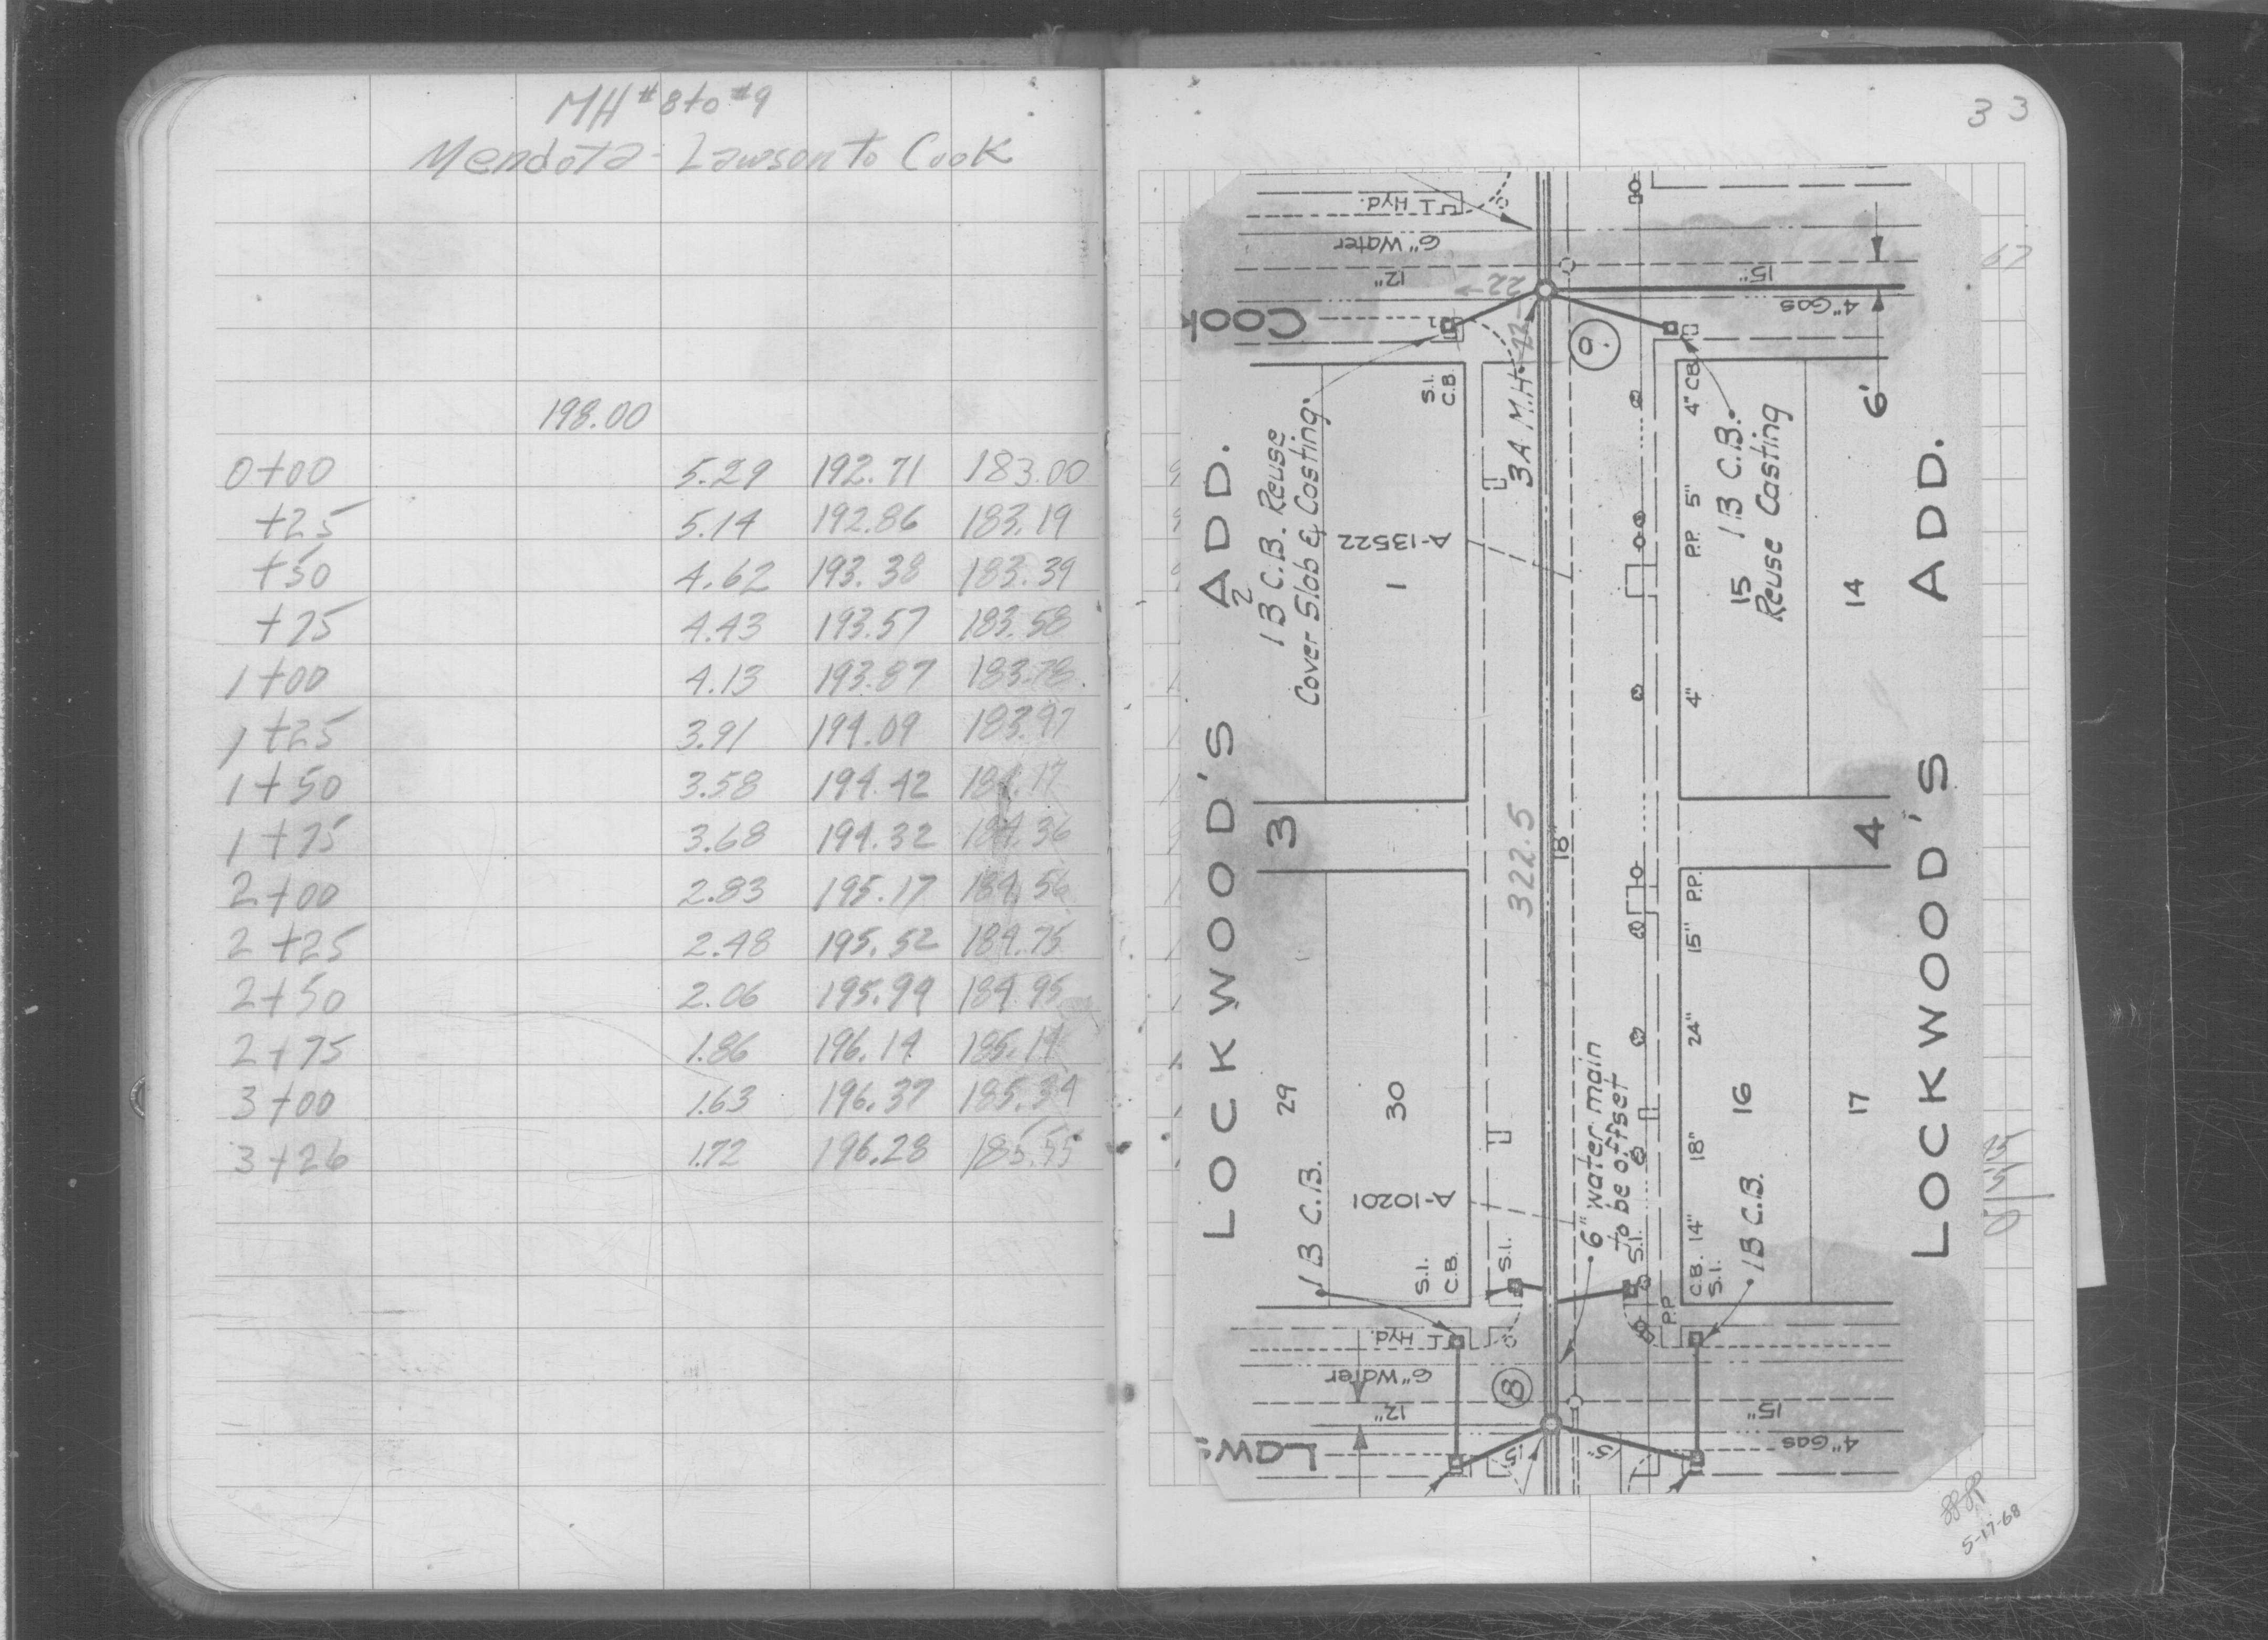 MH #8 to #9
Mendota - Lawson to Cook
198.00
0+00 5.29 192.71 183.00
+25 5.14 192.86 183.19
+50 4.62 193.38 183.39
+75 4.43 193.57 183.58
1+00 4.13 193.87 183.78
1+25 3.91 194.09 183.97
1+50 3.58 194.42 184.17
1+75 3.68 194.32 184.36
2+00 2.83 195.17 184.56
2+25 2.48 195.52 184.75
2+50 2.06 195.94 184.95
2+75 1.86 196.14 185.14
3+00 1.63 196.37 185.34
3+26 1.72 196.28 185.55
33
Hyd.
6" Water
12"
15"
4" Gas
Cook
22
9
6'
S.I.
C.B.
3A M.H.
4" CB
1B C.B.
Reuse Casting
1B C.B. Reuse
Cover Slab & Casting
LOCKWOOD'S ADD.
2
1
A-13522
P.P. 5"
15
14
4"
3
322.5
18"
4
LOCKWOOD'S ADD.
29
30
15" P.P.
24"
16
17
18"
6" water main
to be offset
1B C.B.
A-10201
S.I.
C.B.
S.I.
S.I.
C.B. 14"
S.I.
1B C.B.
P.P.
Hyd.
6" Water
8
12"
15"
4" Gas
Laws
15"
15"
5-17-68